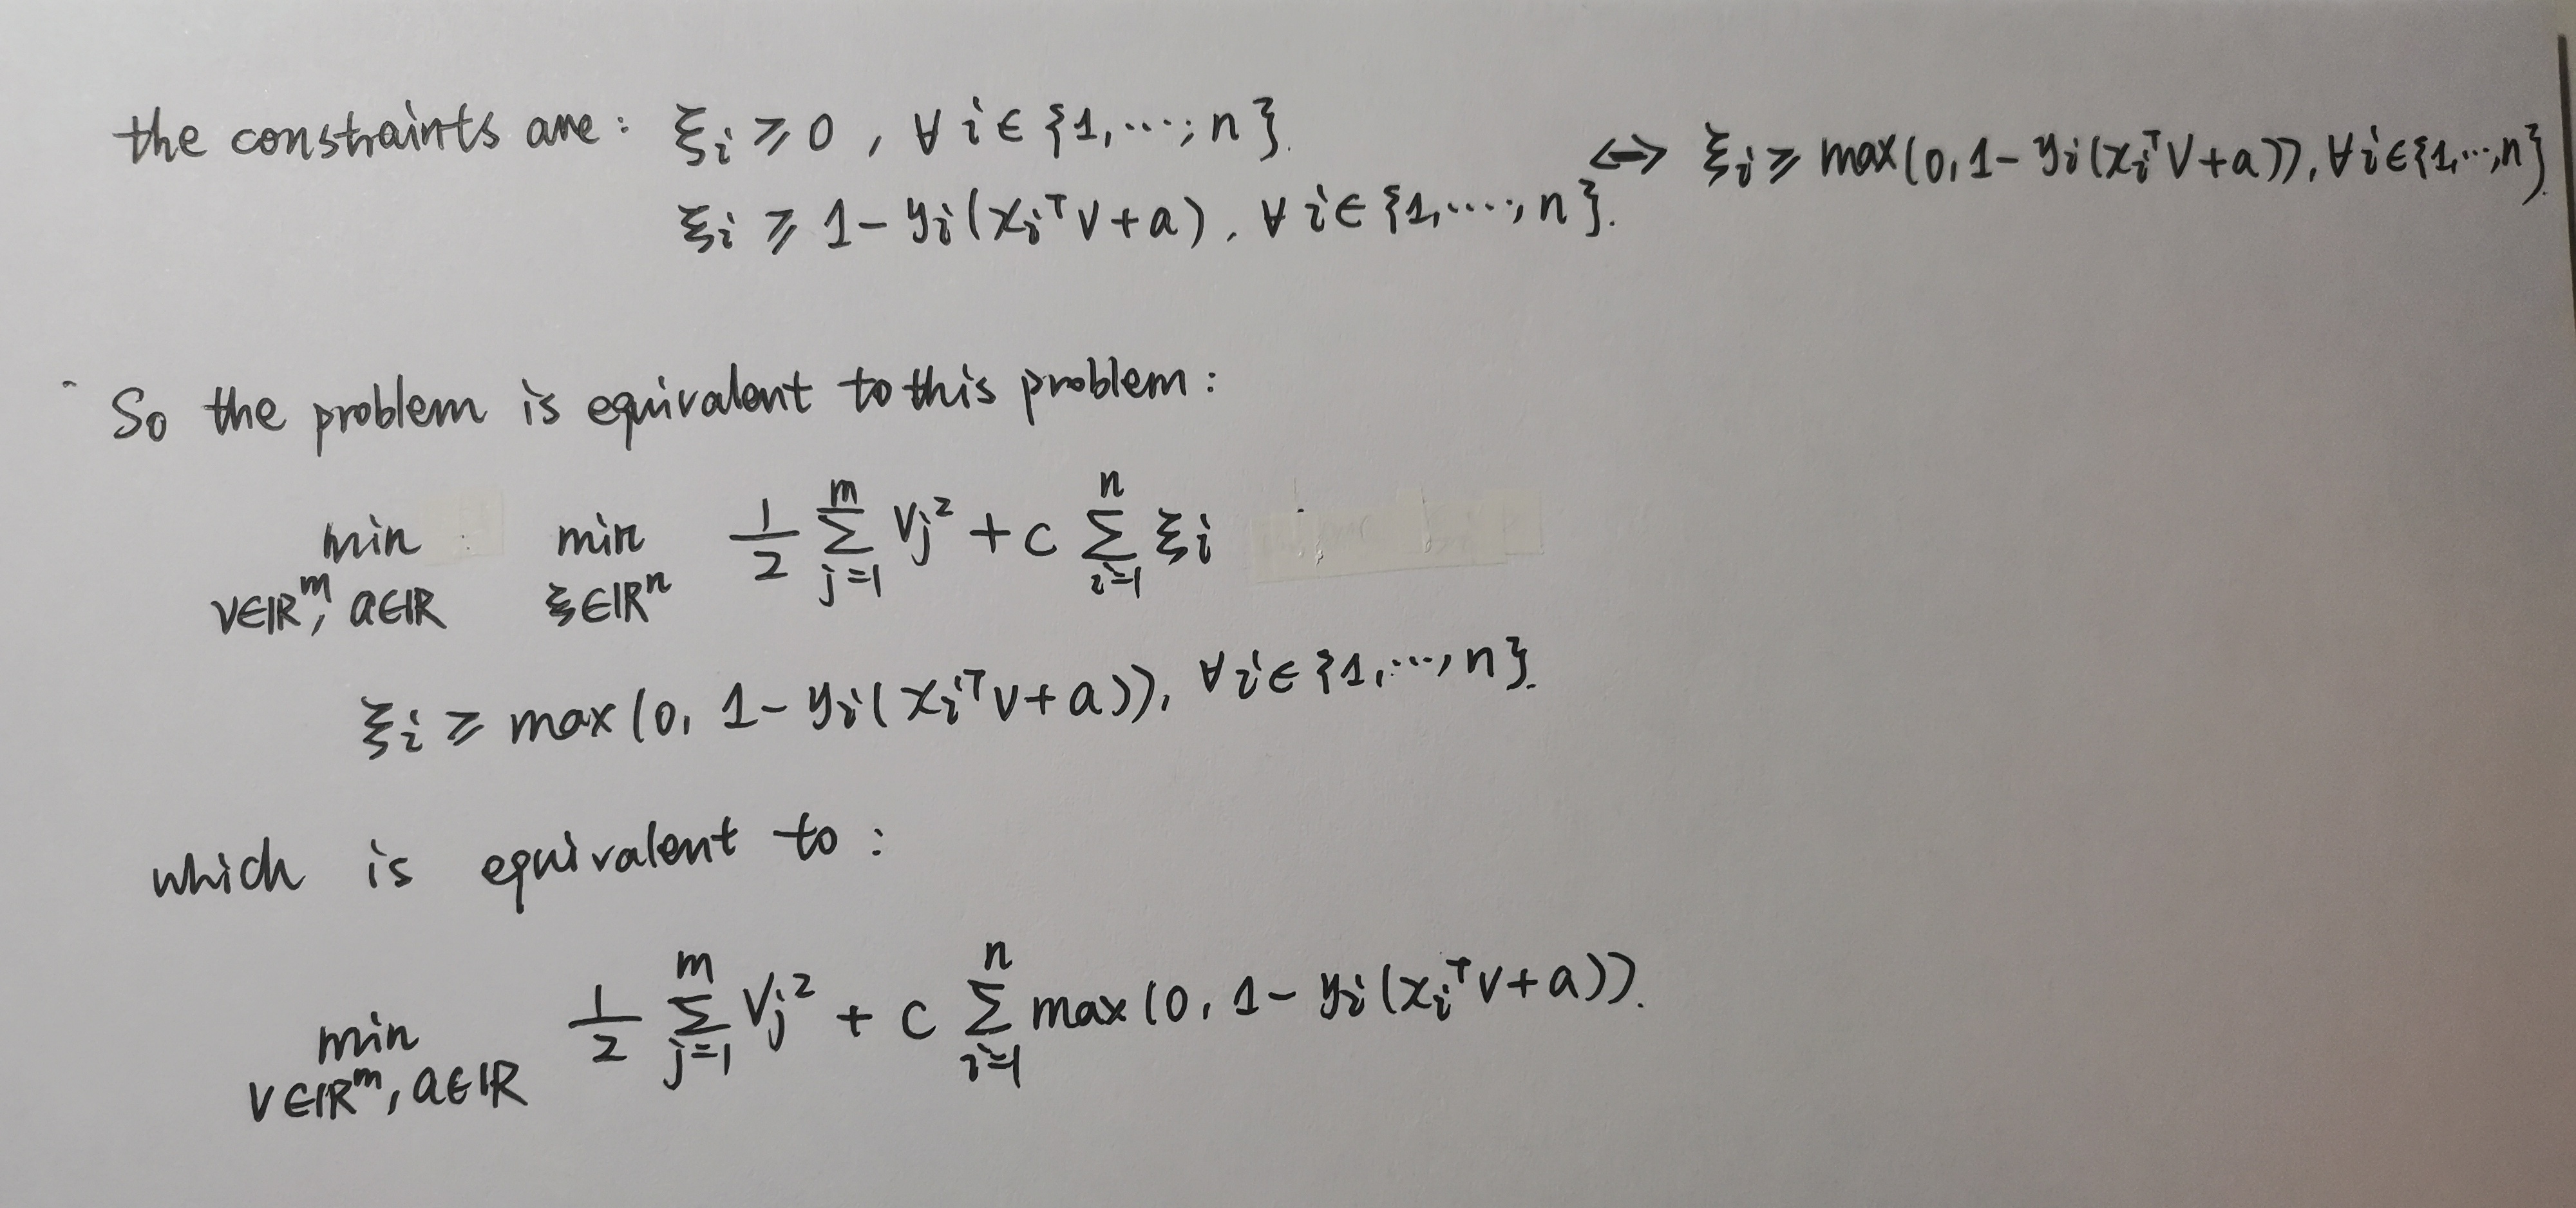 the constraints are: ξᵢ ⩾ 0, ∀ i ∈ {1,...,n}.
ξᵢ ⩾ 1 - yᵢ(xᵢᵀv + a), ∀ i ∈ {1,...,n}.
⟺ ξᵢ ⩾ max(0, 1 - yᵢ(xᵢᵀv + a)), ∀ i ∈ {1,...,n}.
So the problem is equivalent to this problem:
min_{v∈ℝᵐ, a∈ℝ} min_{ξ∈ℝⁿ} 1/2 ∑_{j=1}^{m} vⱼ² + c ∑_{i=1}^{n} ξᵢ
ξᵢ ⩾ max(0, 1 - yᵢ(xᵢᵀv + a)), ∀ i ∈ {1,...,n}.
which is equivalent to:
min_{v∈ℝᵐ, a∈ℝ} 1/2 ∑_{j=1}^{m} vⱼ² + c ∑_{i=1}^{n} max(0, 1 - yᵢ(xᵢᵀv + a)).